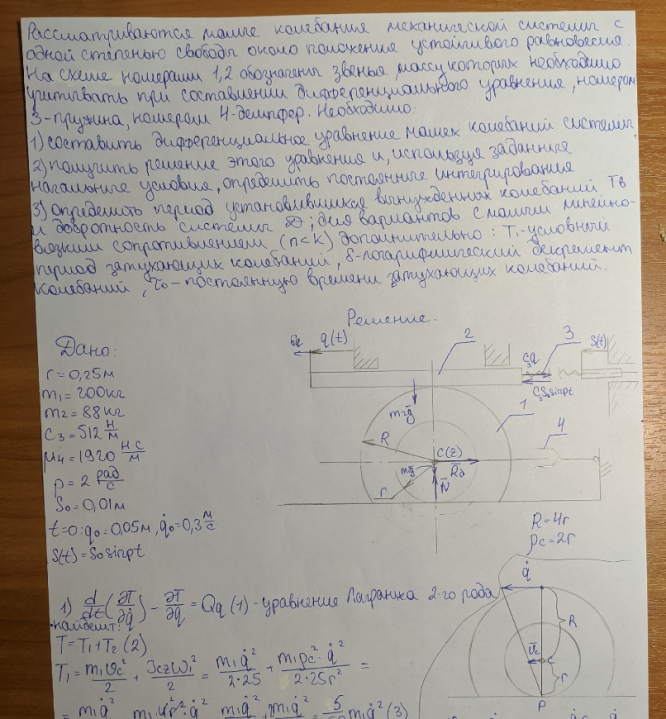 Рассматриваются малые колебания механической системы с
одной степенью свободы около положения устойчивого равновесия.
На схеме номерами 1,2 обозначены звенья, массу которых необходимо
учитывать при составлении дифференциального уравнения, номером
3-пружина, номером 4-демпфер. Необходимо:
1) составить дифференциальное уравнение малых колебаний системы
2) получить решение этого уравнения и, используя заданные
начальные условия, определить постоянные интегрирования
3) определить период установившихся вынужденных колебаний Tв
и добротность системы D; для вариантов с малым линейно-
вязким сопротивлением (n<k) дополнительно: T1-условный
период затухающих колебаний, δ-логарифмический декремент
колебаний, τ0-постоянную времени затухающих колебаний.
Решение.
Дано:
r=0,25м
m1=200кг
m2=88кг
C3=512 Н/м
μ4=1920 Н·с/м
p=2 рад/с
S0=0,01м
t=0: q0=0,05м, q̇0=0,3 м/с
S(t)=S0sinpt
q(t)
2
cq
3
S(t)
CS0sinpt
m2g
1
4
R
C(z)
m1g
Rд
N
r
R=4r
ρc=2r
1) d/dt(∂T/∂q̇) - ∂T/∂q = Qq (1) - уравнение Лагранжа 2-го рода
T=T1+T2 (2)
T1 = m1Vc²/2 + Jczω1²/2 = m1q̇²/2·25 + m1ρc²·q̇²/2·25r² =
q̇
R
Vc
C
r
P